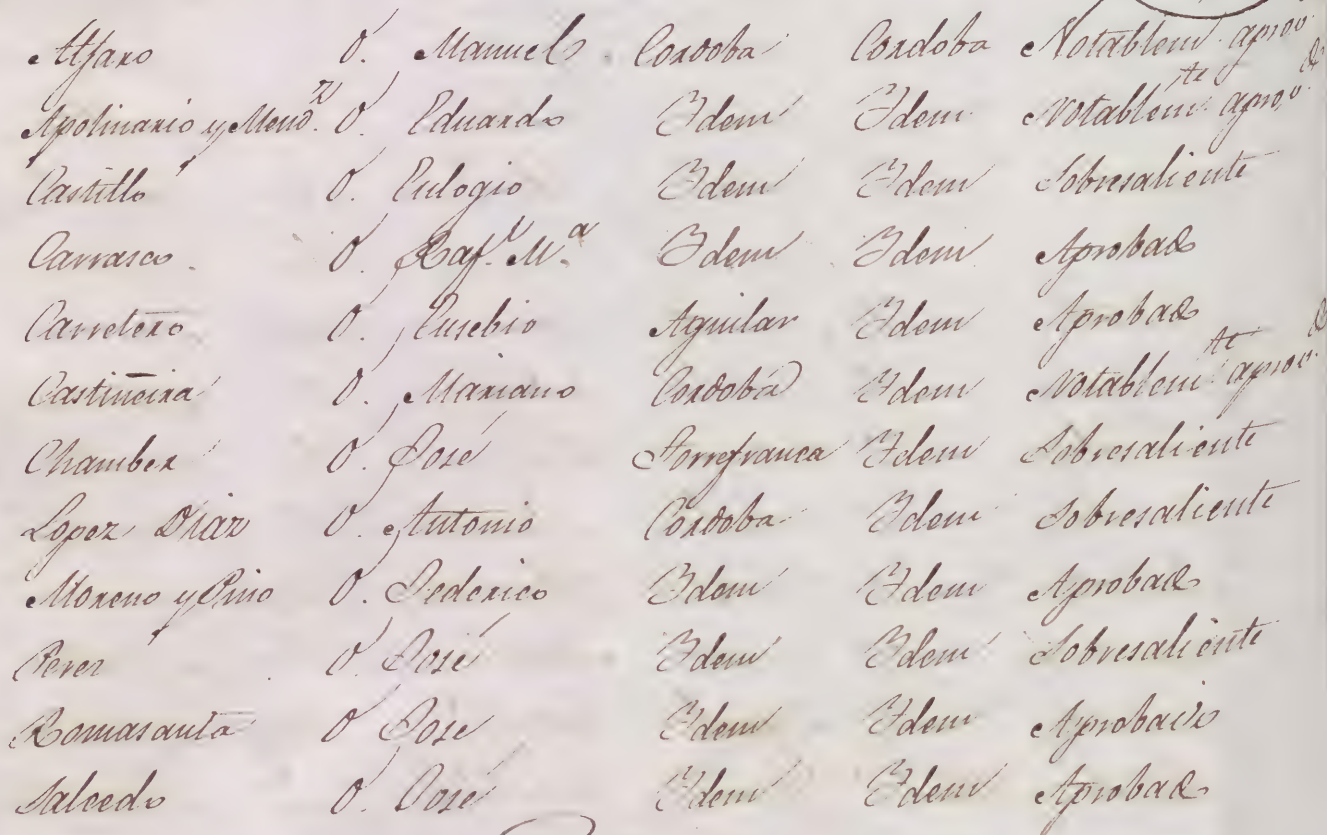 Alfaro D. Manuel Cordoba Cordoba Notablem.te aprov.do
Apolinario y Mend.z D. Eduardo Idem Idem Notablem.te aprov.do
Castillo D. Eulogio Idem Idem Sobresaliente
Carrasco D. Raf.l M.a Idem Idem Aprobado
Carretero D. Eusebio Aguilar Idem Aprobado
Castiñeira D. Mariano Cordoba Idem Notablem.te aprov.do
Chamber D. José Torrefranca Idem Sobresaliente
Lopez Diaz D. Antonio Cordoba Idem Sobresaliente
Moreno y Pino D. Federico Idem Idem Aprobado
Perez D. José Idem Idem Sobresaliente
Romasanta D. José Idem Idem Aprobado
Salcedo D. José Idem Idem Aprobado